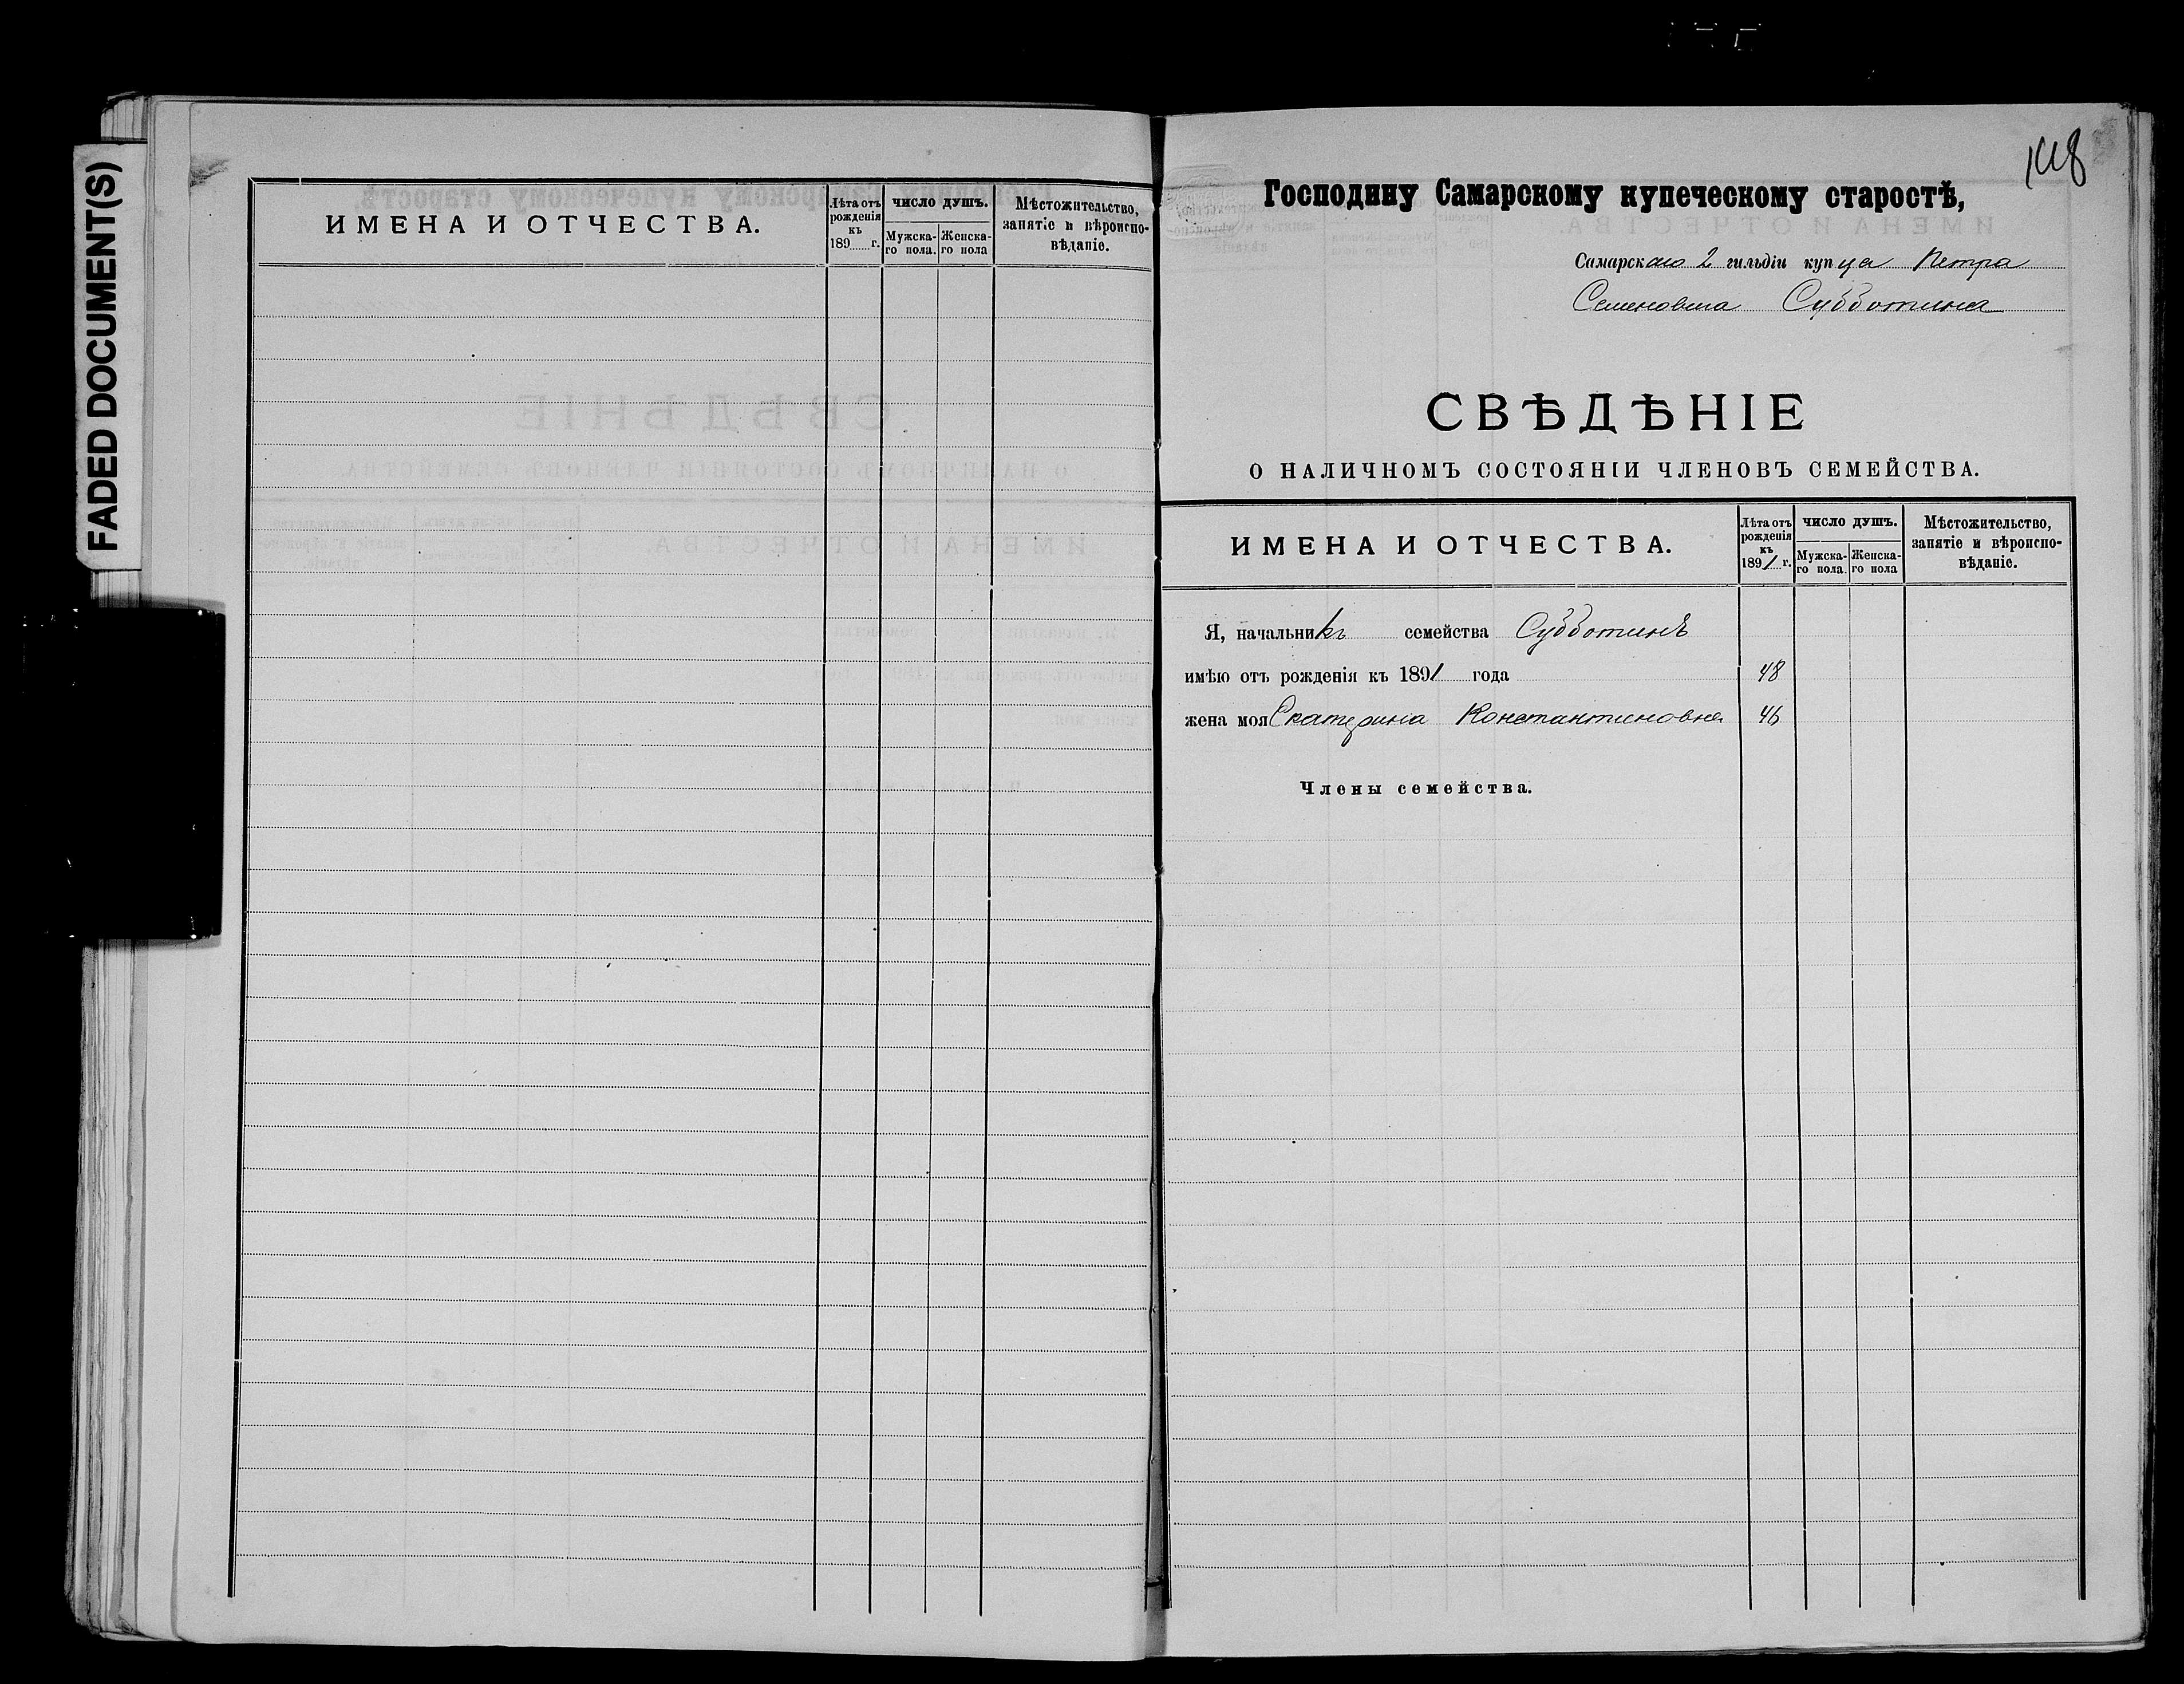 FADED DOCUMENT(S)
ИМЕНА И ОТЧЕСТВА.
Лѣта отъ рожденія къ 189 г.
ЧИСЛО ДУШЪ.
Мужска-го пола.
Женска-го пола
Мѣстожительство, занятіе и вѣроиспо-вѣданіе.
148
Господину Самарскому купеческому старостѣ,
Самарскаго 2 гильдіи купца Петра
Семеновича Субботина
СВѢДѢНІЕ
О НАЛИЧНОМЪ СОСТОЯНІИ ЧЛЕНОВЪ СЕМЕЙСТВА.
ИМЕНА И ОТЧЕСТВА.
Лѣта отъ рожденія къ 1891 г.
ЧИСЛО ДУШЪ.
Мужска-го пола.
Женска-го пола
Мѣстожительство, занятіе и вѣроиспо-вѣданіе.
Я, начальникъ семейства Субботинъ
имѣю отъ рожденія къ 1891 года 48
жена моя Екатерина Константиновна 46
Члены семейства.